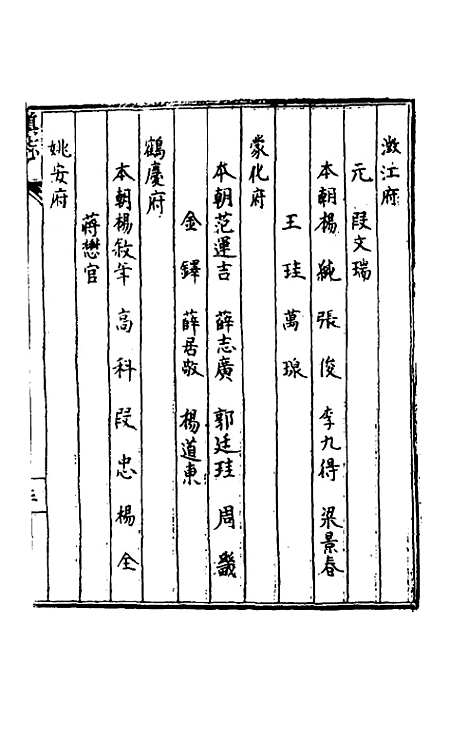 澂江府
元　段文瑞
本朝楊　純　張　俊　李九得　梁景春
王　珪　萬　琅
蒙化府
本朝范運吉　薛志廣　郭廷珪　周　畿
金　鐸　薛居敬　楊道東
鶴慶府
本朝楊敘年　高　科　段　忠　楊　全
蔣懋官
姚安府
滇志